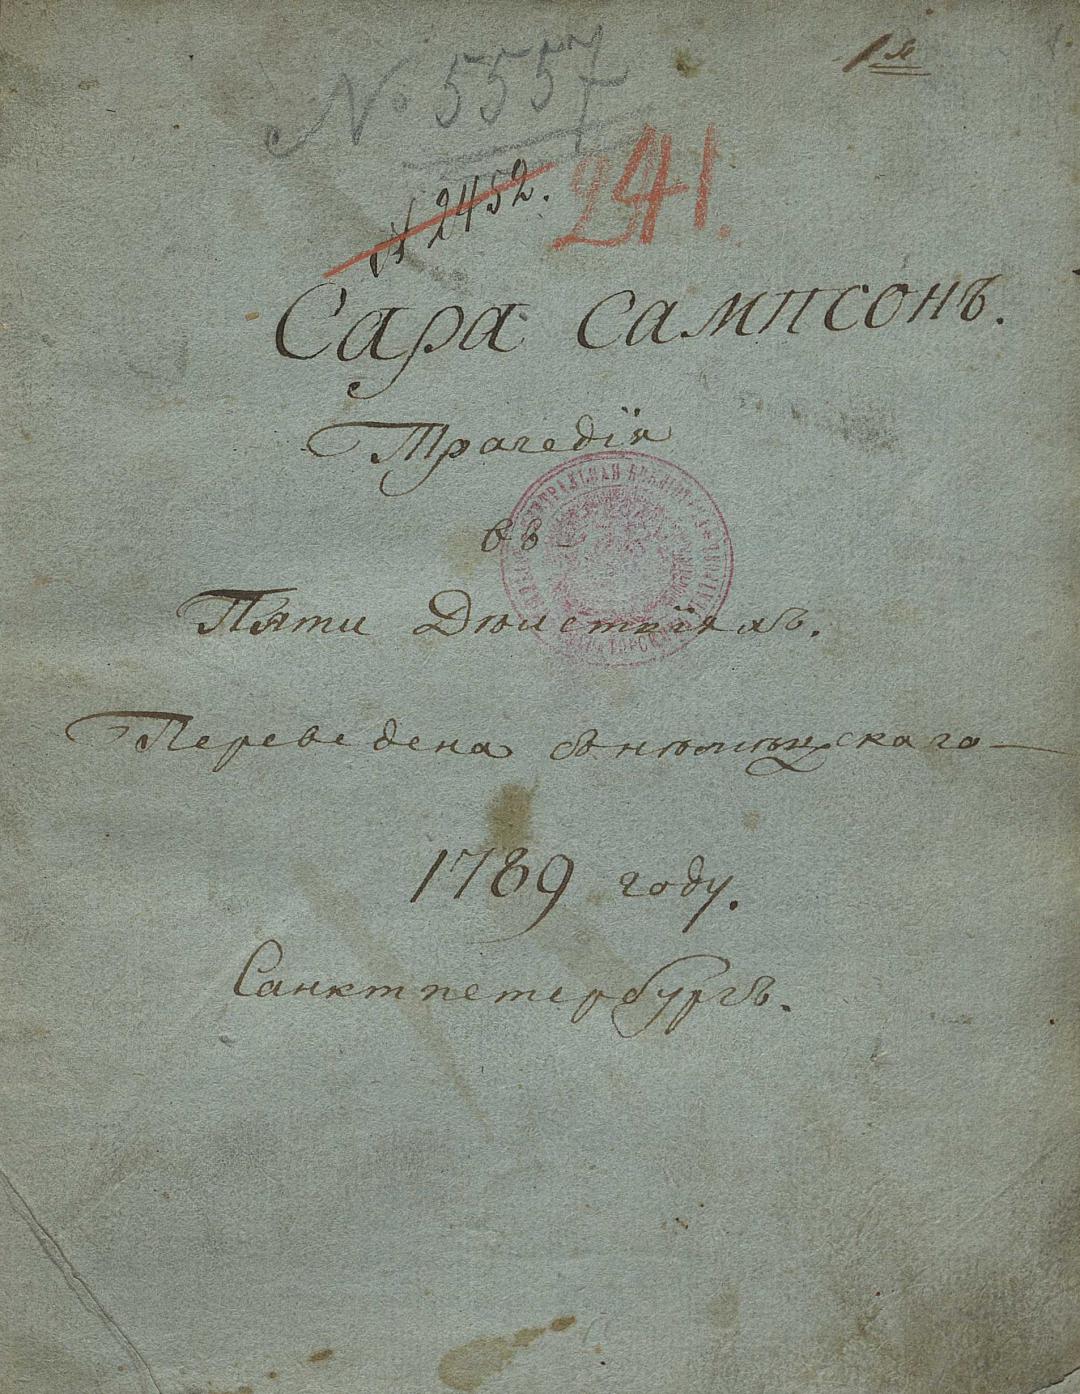 1я
№ 5557
№ 2452.
241.
Сара сампсонъ.
Трагедїя
въ
Пяти Дѣиствїяхъ.
Переведена сънѣмѣцскаго
1789 году.
Санктпетербургъ.